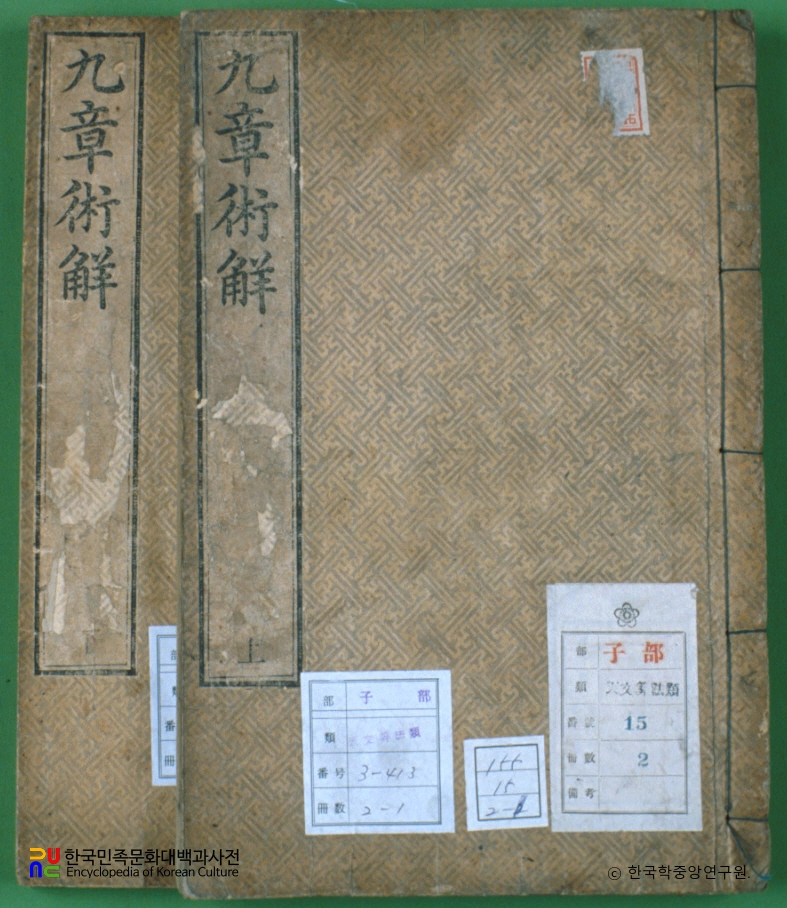 九章術解
九章術解
上
部 子部
類 天文算法類
番号 3-413
冊数 2-1
15
部 子部
類 天文算法類
番號 15
冊數 2
備考
部
類
番
冊
한국민족문화대백과사전
Encyclopedia of Korean Culture
© 한국학중앙연구원.